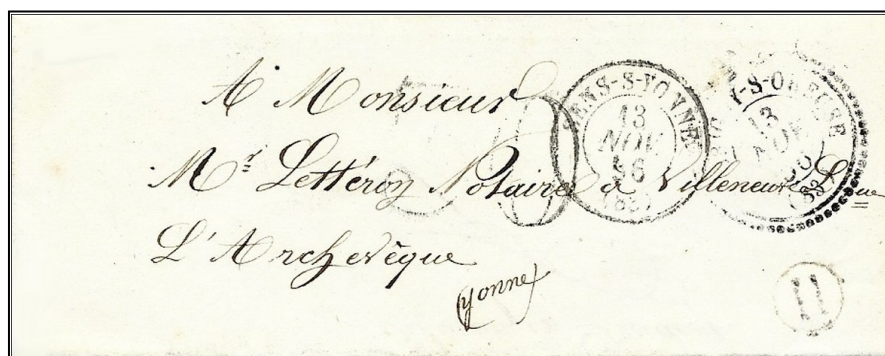 A Monsieur
Mr Lettéron Notaire à Villeneuve
L'Archevêque
(Yonne)
SENS-S-YONNE
13
NOV
56
(83)
Y-S-OREUSE
13
NOV
56
(83)
H